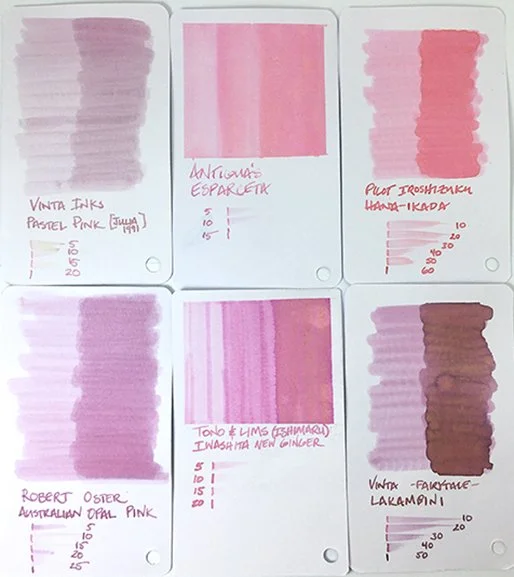 VINTA INKS
PASTEL PINK [JULIA]
1991
5
10
15
20
ANTIQUA'S
ESPARCETA
5
10
15
PILOT IROSHIZUKU
HANA-IKADA
10
20
30
40
50
60
ROBERT OSTER
AUSTRALIAN OPAL PINK
5
10
15
20
25
TONO & LIMS (ISHIMARU)
IWASHITA NEW GINGER
5
10
15
20
VINTA -FAIRYTALE-
LAKAMPINI
10
20
30
40
50